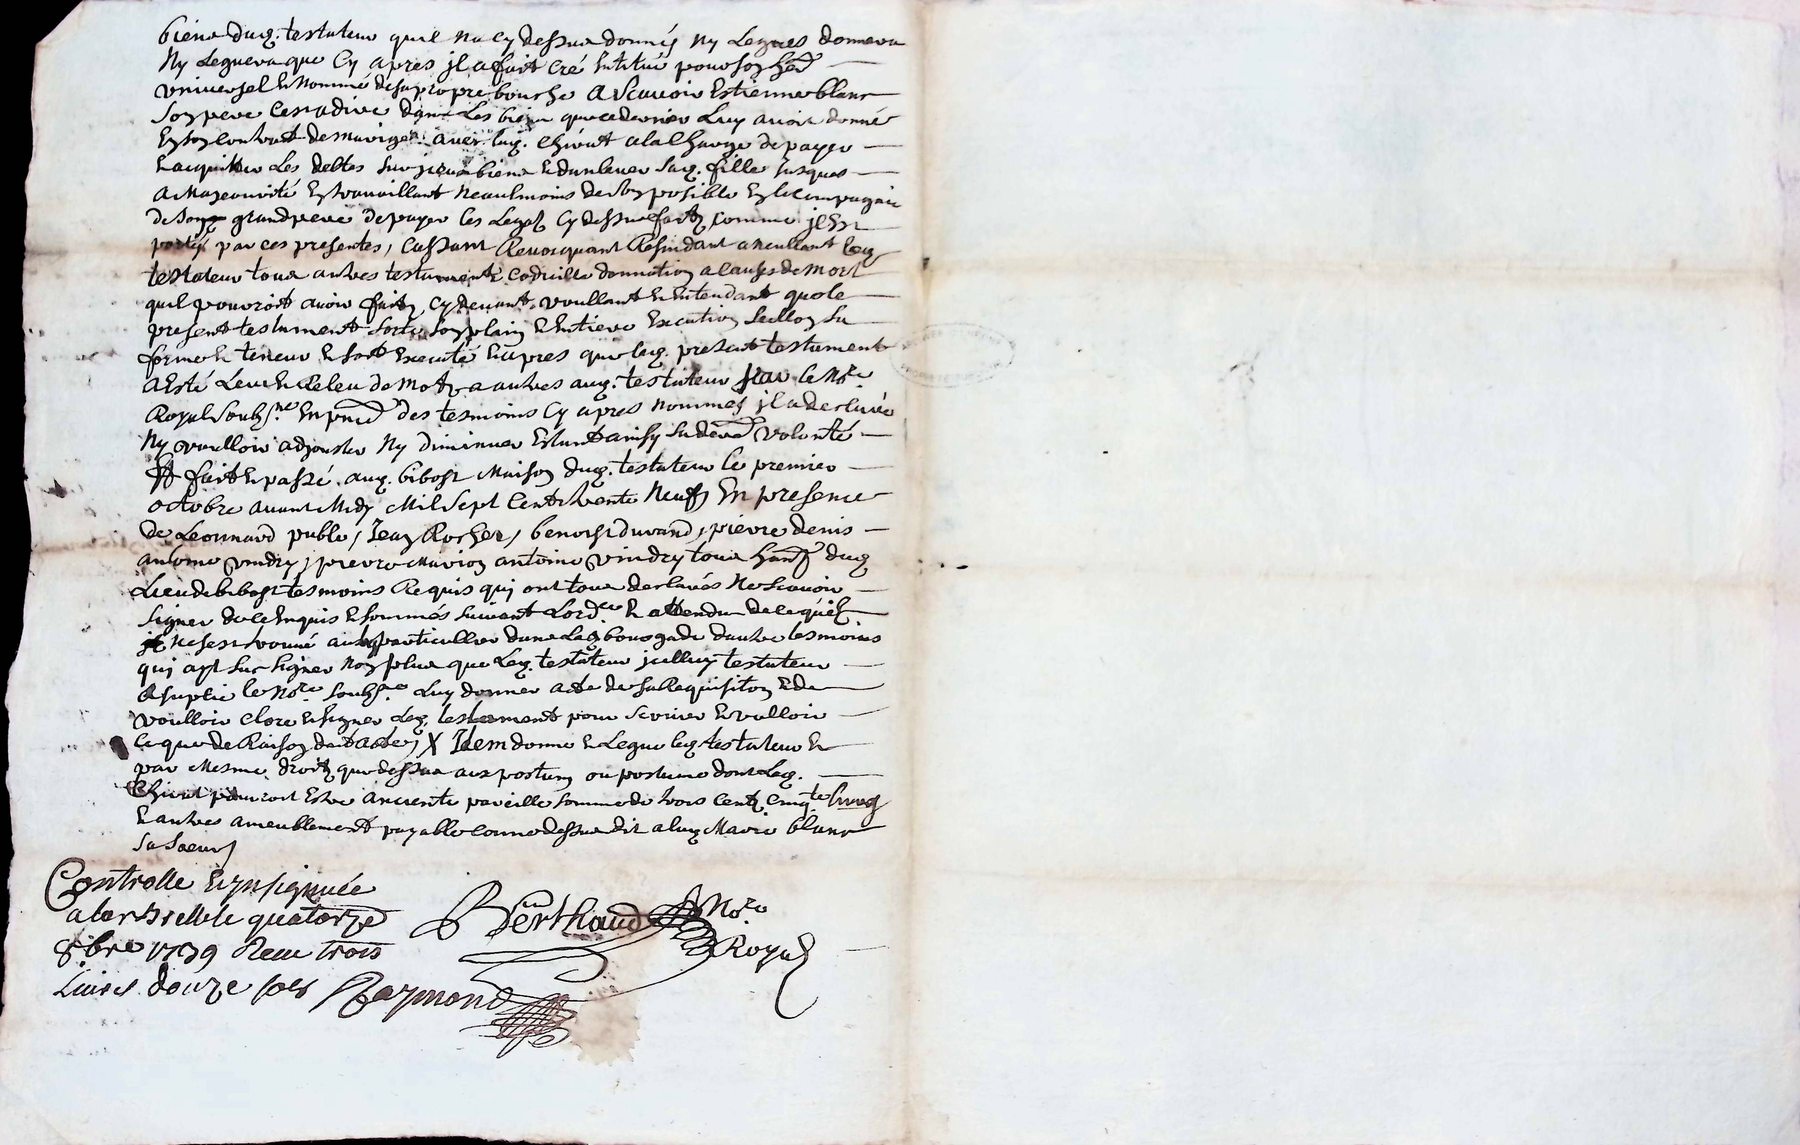 biens dud. testateur quil na cy dessus donnés ny legues donnera
ny leguera que cy apres il a fait cré institué pour son hed.r
universel et nommé de sa propre bouche a scavoir Estienne blanc
son pere cest a dire dans les biens que ce dernier luy avoit donné
en son contrat de mariage avec lad. Chirat a la charge de payer
et acquitter les debtes sur iceux biens et danlever sad. fille jusques
a majeaurité en travaillant neaulmoins de son posible en la compagnie
de son grandpere de payer les legat cy dessus faits comme il est
portés par ces presentes, cassant revocquant resindant aneullant led.
testateur tous autres testaments codicille donnation a causes de mort
quil pourroit avoir faits cy devant voullant et entendant que le
present testament sorte son plain et entiere execution seullon sa
forme et teneur et soit executé et apres que led. present testament
a esté leu et releu de mot a autres aud. testateur par le no.re
Royal soubs.né en pnce des tesmoins cy apres nommes il a desclaré
ny voulloir adjouster ny diminuer estant ainsy sa derre volonté
fait et passé aud. bibost maison dud. testateur le premier
octobre avant midy mil sept cent trente neuf en presence
de Leonnard publo, Jean Rocher, benoist Durand, pierre denis
antoine vindry, pierre Marion antoine vindry tous hants dud.
Lieu de bibost tesmoins requis qui ont tous desclarés ne scavoir
signer de ce enquis et sommés suivant lord.ce et attendu de ce quil
ne sest trouvé aucun particullier dans lad. bourgade dautre tesmoins
qui ayt sceu signer non plus que led. testateur icelluy testateur
a suplié le no.re soubs.né luy donner acte de sa requisition et de
voulloir clore et signer led. testament pour servir et valloir
ce que de raison dont acte, X Idem donne et legue led. testateur et
par mesme droits que dessus aux postum ou postume dont lad.
Chirat pourroit estre anciente pareille somme de trois cents cinq.te livres
et autres ameublement payable comme dessus dit a lad. Marie blanc
sa soeur
Controlle et ynsignuée
a larbrelle le quatorze
8.bre 1739 Receu trois
livres douze sols Raymond
Berthaud No.re
Royal